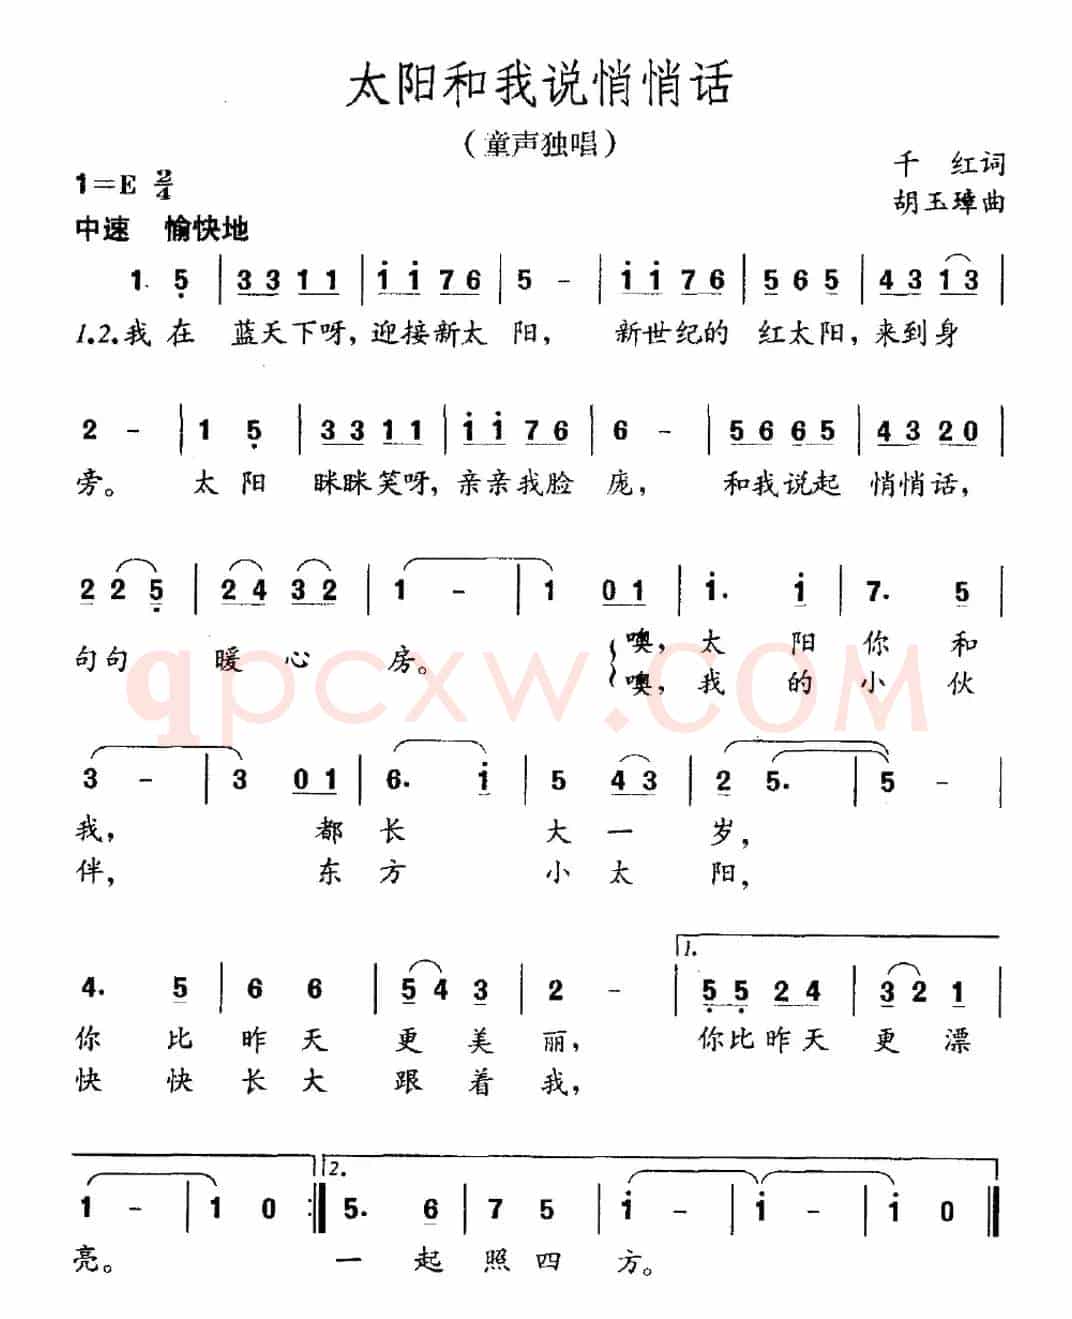 太阳和我说悄悄话
（童声独唱）
1=E 2/4
千 红词
胡玉璋曲
中速 愉快地
1 5 | 3 3 1 1 | i i 7 6 | 5 - | i i 7 6 | 5 6 5 | 4 3 1 3 |
1.2.我 在 蓝天下呀,迎接新太 阳, 新世纪的 红太阳,来到身
2 - | 1 5 | 3 3 1 1 | i i 7 6 | 6 - | 5 6 6 5 | 4 3 2 0 |
旁。 太 阳 眯眯笑呀,亲亲我脸 庞, 和我说起 悄悄话,
2 2 5 | 2 4 3 2 | 1 - | 1 0 1 | i. i | 7. 5 |
句句 暖 心 房。 噢,太 阳 你 和
噢,我 的 小 伙
qpcxw.COM
3 - | 3 0 1 | 6. i | 5 4 3 | 2 5. | 5 - |
我, 都 长 大 一 岁,
伴, 东 方 小 太 阳,
1.
4. 5 | 6 6 | 5 4 3 | 2 - | 5 5 2 4 | 3 2 1 |
你 比 昨 天 更 美 丽, 你比昨天 更 漂
快 快 长 大 跟 着 我,
2.
1 - | 1 0 :| 5. 6 | 7 5 | i - | i - | i 0 |
亮。 一 起 照 四 方。